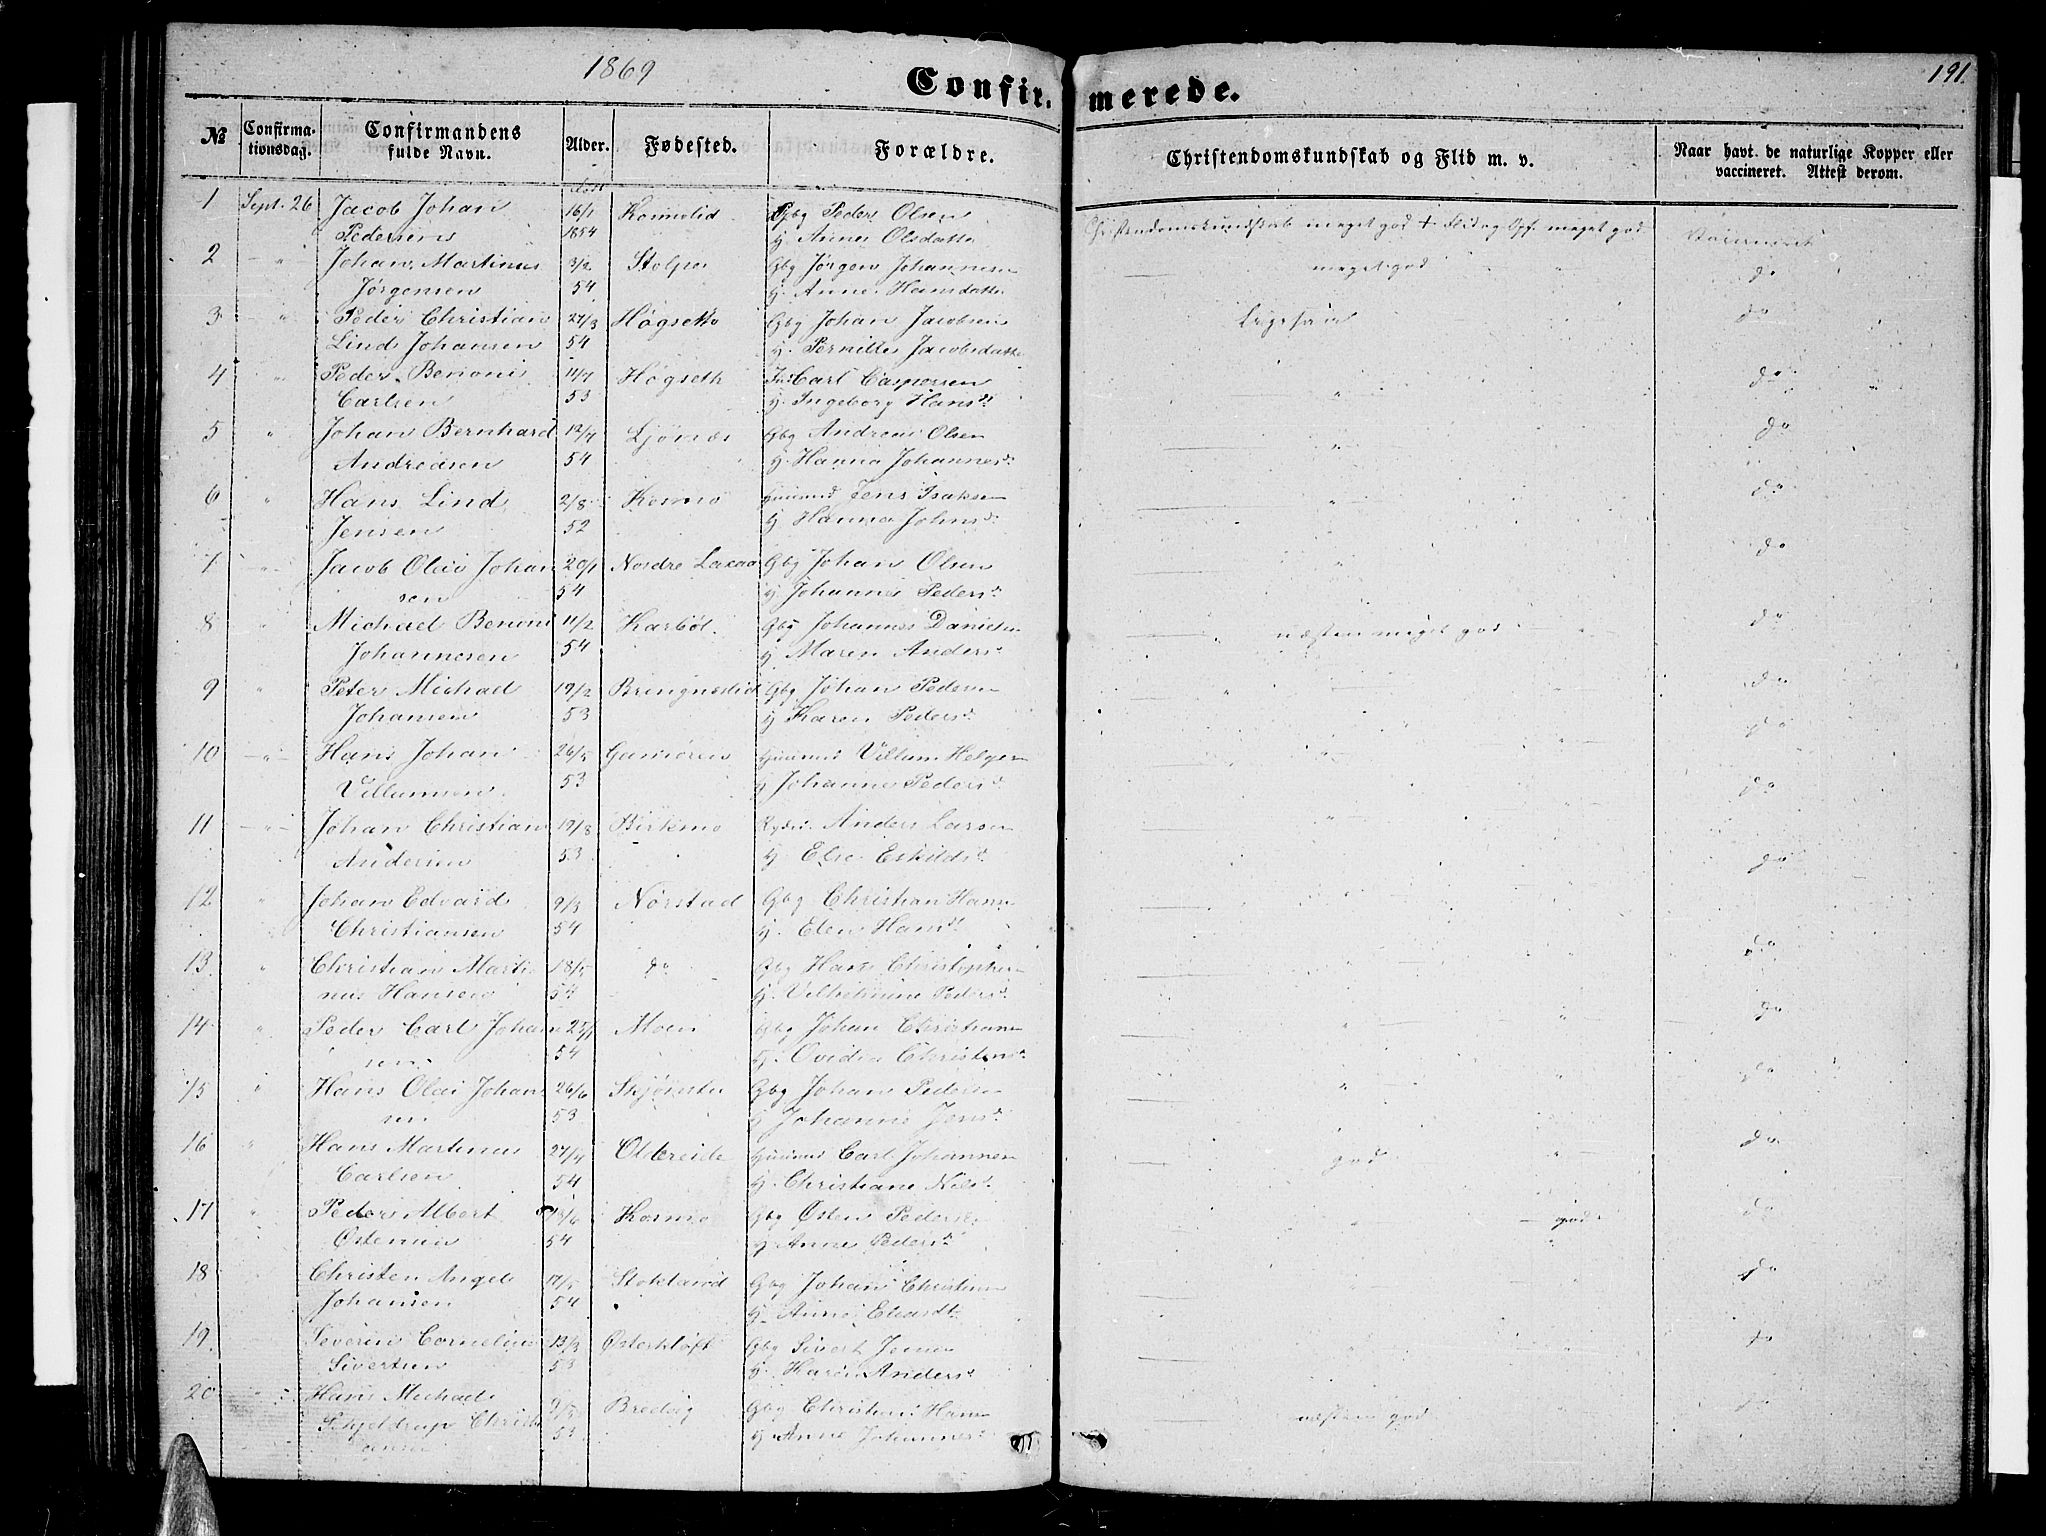 1869
Confir- merede.
191.
№
Confirma-
tionsdag.
Confirmandens
fulde Navn.
Alder.
Fødested.
Forældre.
Christendomskundskab og Flid m. v.
Naar havt de naturlige Kopper eller
vaccineret. Attest derom.
1 Sept. 26 Jacob Johan 16/1 Gbg Peder Olsen Christendomskundskab meget god + Flid og Opf. meget god Vaccineret
Pedersen 1854 H. Anne Olsdatter
2 - " - Johan Martinus 3/2 Stolpe Gbg Jørgen Johannesen meget god do
Jørgensen 54 H. Anne Hansdatter
3 - " Peder Christian 27/3 Høgseth Gbg Johan Jacobsen ligesaa do
Lind Johansen 54 H. Pernille Jacobsdatter
4 " Peder Benoni 11/7 Høgseth Ins Carl Caspersen " do
Carlsen 53 H. Ingeborg Hansd.
5 " Johan Bernhard 12/4 Ljønes Gbg Andreas Olsen " do
Andreasen 54 H. Hanna Johannesd.
6 " Hans Lind 2/8 Kosmo Huusmd Jens Isaksen " do
Jensen 52 H. Hanna Johnsd.
7 - " - Jacob Olai Johan 20/1 Nordre Laxaa Gbg Johan Olsen " do
sen 54 H. Johanne Pedersd.
8 " Michael Benoni 11/2 Karbøl Gbg Johannes Danielsen " næsten meget god " do
Johannesen 54 H. Maren Andersd.
9 " Peter Michael 19/2 Bringneslid Gbg Johan Pedersen " " do
Johansen 53 H. Karen Pedersd.
10 - " - Hans Johan 26/5 Huusmd Villum Helgesen " do
Villumsen 53 H. Johanne Pedersd.
11 - " - Johan Christian 19/8 Birkmo Anders Larsen do
Andersen 53 H. Else Eskildsd.
12 " Johan Edvard 9/3 Nørstad Gbg Christian Hansen " do
Christiansen 54 H. Elen Hansd.
13 " Christian Marti- 18/5 do Gbg Hans Christophersen do
nus Hansen 54 H. Vilhelmine Pedersd.
14 " Peder Carl Johan 25/1 Moen Gbg Johan Christiansen " do
sen 54 H. Ovidia Christensd.
15 " Hans Olai Johan 26/6 Skjønstu Gbg Johan Pedersen " do
sen 53 H. Johanne Jensd.
16 " Hans Martinus 27/4 Oldereide Huusmd Carl Johannesen god " do
Carlsen 54 H. Christiane Nilsd.
17 " Peder Albert 13/6 Kosmo Gbg Østen Pedersen god do
Østensen 54 H. Anne Pedersd.
18 " Christen Angel 17/5 Stokland Gbg Johan Christensen " do
Johansen 54 H. Anne
19 " Severin Cornelius 13/3 Østerkløft Gbg Sivert Jensen do
Sivertsen 53 H. Karen Andersd.
20 " Hans Michael 9/5 Bredvig Gbg Christian Hansen næsten god do
Schjeldrup Christi 53 H. Anne Johannesd.
ansen